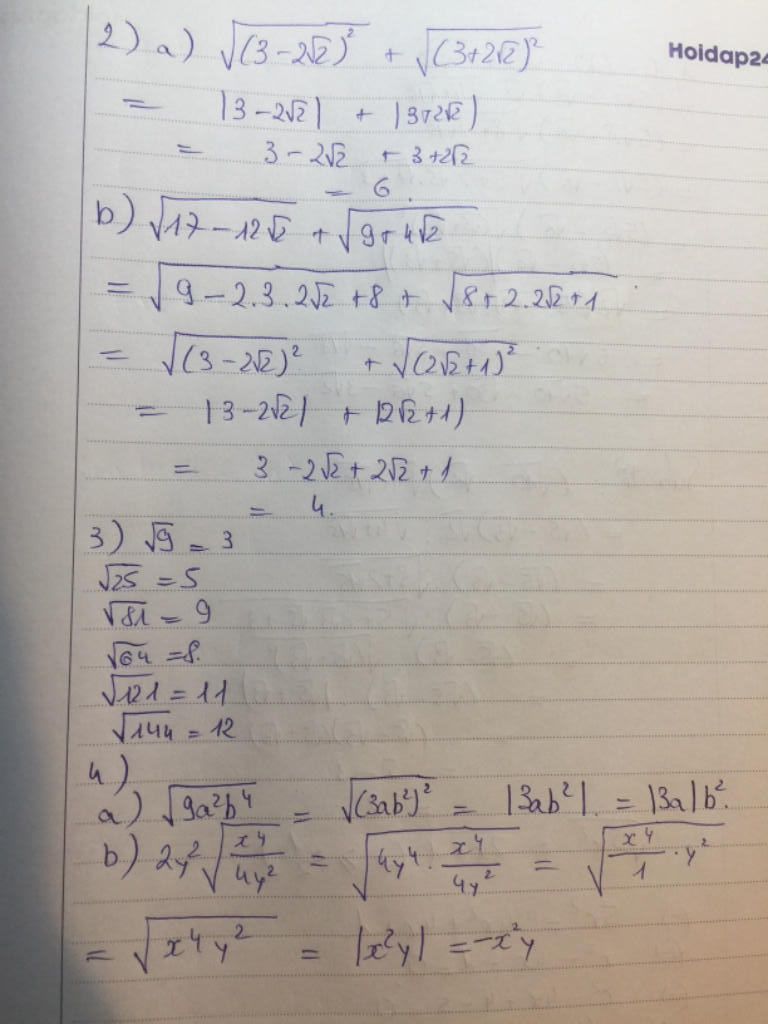 2) a) √(3-2√2)² + √(3+2√2)²
Hoidap24
= |3-2√2| + |3+2√2|
= 3-2√2 + 3+2√2
= 6.
b) √17-12√2 + √9+4√2
= √9-2.3.2√2+8 + √8+2.2√2+1
= √(3-2√2)² + √(2√2+1)²
= |3-2√2| + |2√2+1|
= 3-2√2+2√2+1
= 4.
3) √9 = 3
√25 = 5
√81 = 9
√64 = 8.
√121 = 11
√144 = 12
4)
a) √9a²b⁴ = √(3ab²)² = |3ab²|. = |3a|b².
b) 2y²√x⁴/4y² = √4y⁴.x⁴/4y² = √x⁴/1.y²
= √x⁴y² = |x²y| = -x²y